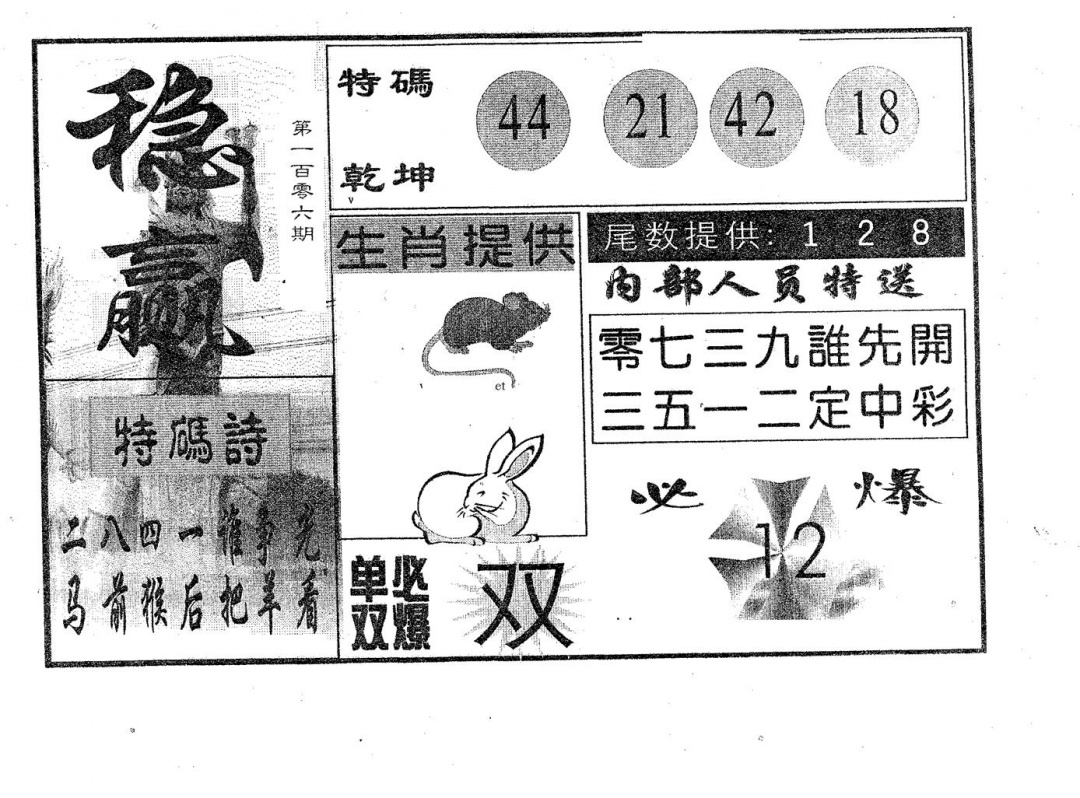 稳赢
第一百零六期
特碼
乾坤
44 21 42 18
生肖提供
尾数提供: 1 2 8
内部人员特送
零七三九誰先開
三五一二定中彩
特碼詩
二八四一谁争先
马前猴后把羊看
必爆
12
单双必爆
双